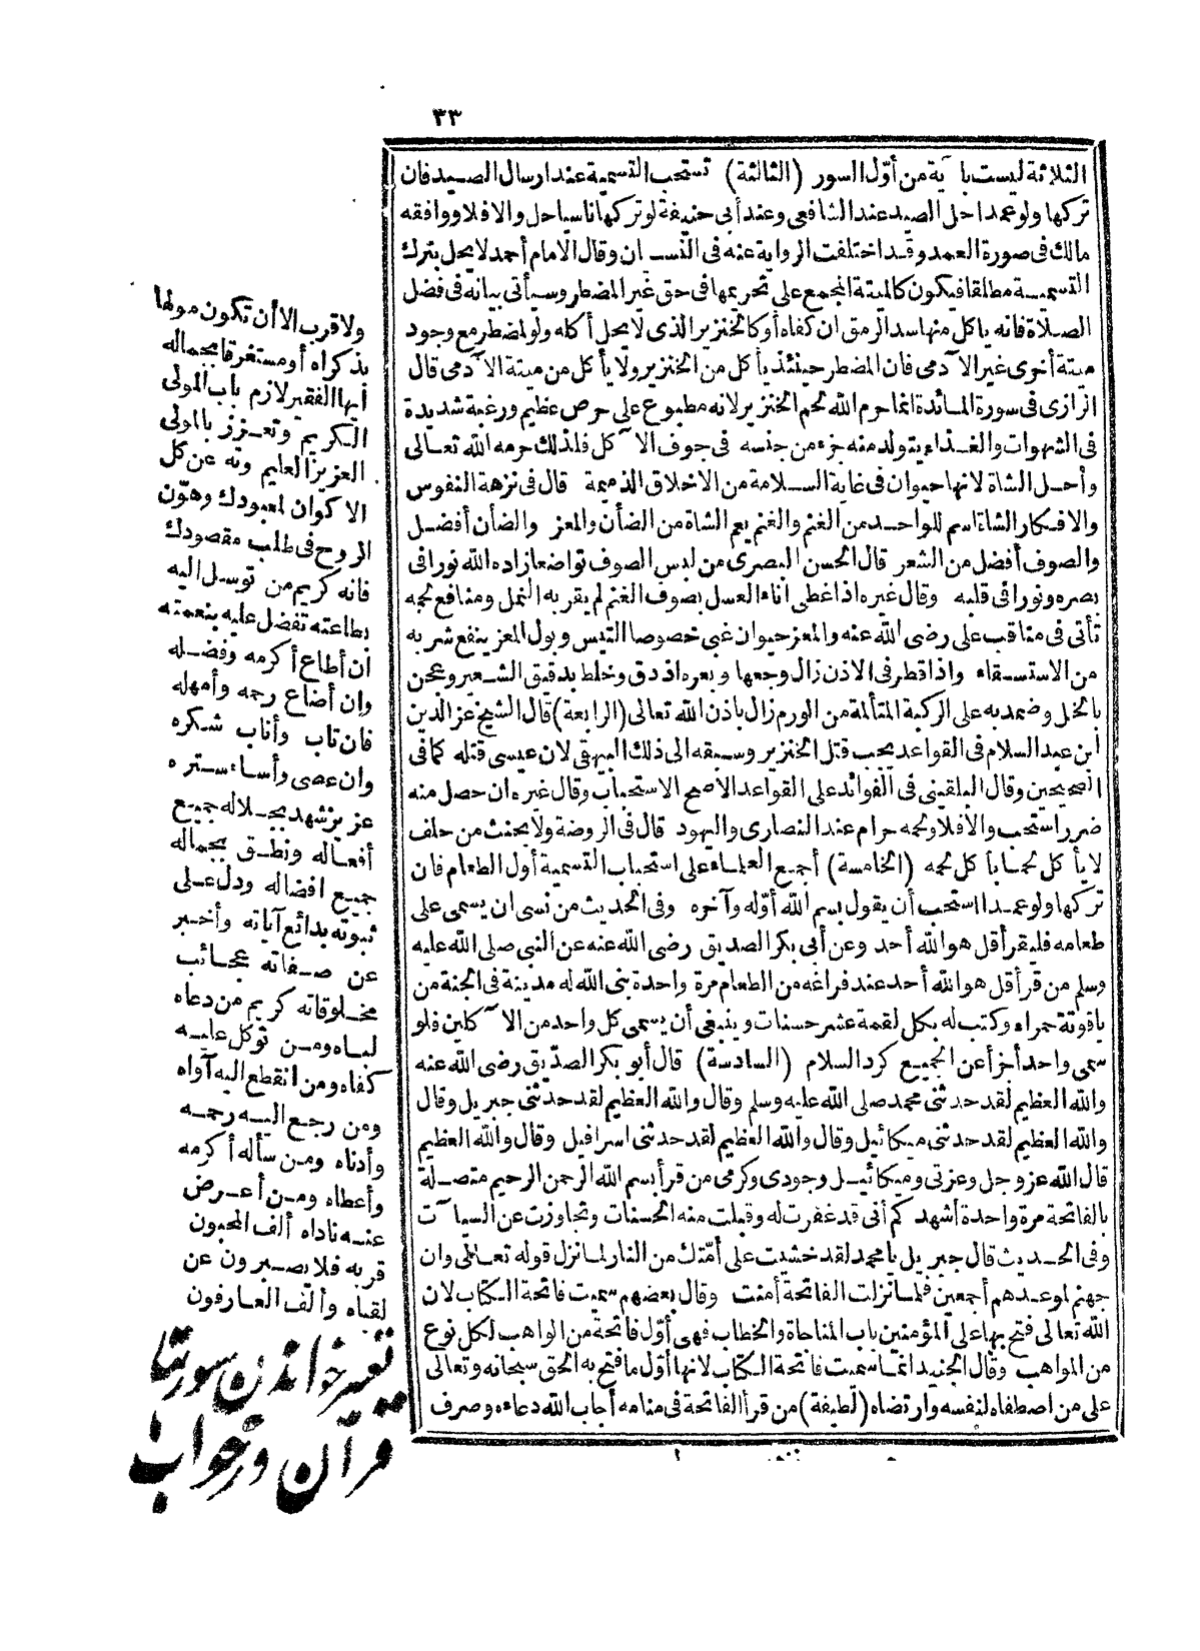 ٣٣
الثلاثة ليست بآية من أوّل السور (الثالثة) تستحب التسمية عند ارسال الصيد فان
تركها ولو عمدا حل الصيد عند الشافعى وعند أبى حنيفة لو تركها ناسيا حل والا فلا ووافقه
مالك فى صورة العمد وقد اختلفت الرواية عنه فى النسيان وقال الامام أحمد لا يحل بترك
التسمية مطلقا فيكون كالميتة المجمع على تحريمها فى حق غير المضطر وسيأتى بيانه فى فضل
الصلاة فانه يأكل منها سد الرمق ان كفاه أو كالخنزير الذى لا يحل أكله ولو لمضطر مع وجود
ميتة أخرى غير الآدمى فان المضطر حينئذ يأكل من الخنزير ولا يأكل من ميتة الآدمى قال
الرازى فى سورة المائدة انما حرم الله لحم الخنزير لانه مطبوع على حرص عظيم ورغبة شديدة
فى الشهوات والغذاء يتولد منه جزء من جنسه فى جوف الآكل فلذلك حرمه الله تعالى
وأحل الشاة لانها حيوان فى غاية السلامة من الاخلاق الذميمة قال فى نزهة النفوس
والافكار الشاة اسم للواحد من الغنم والغنم يعم الشاة من الضأن والمعز والضأن أفضل
والصوف أفضل من الشعر قال الحسن البصرى من لبس الصوف تواضعا زاده الله نورا فى
بصره ونورا فى قلبه وقال غيره اذا غطى اناء العسل بصوف الغنم لم يقربه النمل ومنافع لحمه
تأتى فى مناقب على رضى الله عنه والمعز حيوان غبى خصوصا التيس وبول المعز ينفع شربه
من الاستسقاء واذا قطر فى الاذن زال وجعها وبعره اذ دق وخلط بدقيق الشعير وعجن
بالخل وضمد به على الركبة المتألمة من الورم زال باذن الله تعالى (الرابعة) قال الشيخ عز الدين
ابن عبد السلام فى القواعد يجب قتل الخنزير وسبقه الى ذلك البيهقى لان عيسى قتله كما فى
الصحيحين وقال البلقينى فى الفوائد على القواعد الاصح الاستحباب وقال غيره ان حصل منه
ضرر استحب والا فلا ولحمه حرام عند النصارى واليهود قال فى الروضة ولا يحنث من حلف
لا يأكل لحما بأكل لحمه (الخامسة) أجمع العلماء على استحباب التسمية أول الطعام فان
تركها ولو عمدا استحب أن يقول بسم الله أوّله وآخره وفى الحديث من نسى ان يسمى على
طعامه فليقرأ قل هو الله أحد وعن أبى بكر الصديق رضى الله عنه عن النبى صلى الله عليه
وسلم من قرأ قل هو الله أحد عند فراغه من الطعام مرة واحدة بنى الله له مدينة فى الجنة من
ياقوتة حمراء وكتب له بكل لقمة عشر حسنات وينبغى أن يسمى كل واحد من الآكلين فلو
سمى واحد أجزأ عن الجميع كرد السلام (السادسة) قال أبو بكر الصدّيق رضى الله عنه
والله العظيم لقد حدثنى محمد صلى الله عليه وسلم وقال والله العظيم لقد حدثنى جبريل وقال
والله العظيم لقد حدثنى ميكائيل وقال والله العظيم لقد حدثنى اسرافيل وقال والله العظيم
قال الله عز وجل وعزتى وميكائيل وجودى وكرمى من قرأ بسم الله الرحمن الرحيم متصلة
بالفاتحة مرة واحدة أشهدكم أنى قد غفرت له وقبلت منه الحسنات وتجاوزت عن السيآت
وفى الحديث قال جبريل يا محمد لقد خشيت على أمّتك من النار لما نزل قوله تعالى وان
جهنم لموعدهم أجمعين فلما نزلت الفاتحة أمنت وقال بعضهم سميت فاتحة الكتاب لان
الله تعالى فتح بها على المؤمنين باب المناجاة والخطاب فهى أوّل فاتحة من الواهب لكل نوع
من المواهب وقال الجنيد انما سميت فاتحة الكتاب لانها أول ما فتح به الحق سبحانه وتعالى
على من اصطفاه لنفسه وارتضاه (لطيفة) من قرأ الفاتحة فى منامه أجاب الله دعاءه وصرف
ولا قرب الا أن تكون مولها
بذكراه أو مستغرقا بجماله
أيها الفقير لازم باب المولى
الكريم وتعزز بالمولى
العزيز العليم وته عن كل
الاكوان لمعبودك وهوّن
الروح فى طلب مقصودك
فانه كريم من توسل اليه
بطاعته تفضل عليه بنعمته
ان أطاع أكرمه وفضله
وان أضاع رحمه وأمهله
فان تاب وأناب شكره
وان عصى وأساء ستره
عزيز شهد بجلاله جميع
أفعاله ونطق بجماله
جميع افضاله ودل على
ثبوته بدائع آياته وأخبر
عن صفاته عجائب
مخلوقاته كريم من دعاه
لباه ومن توكل عليه
كفاه ومن انقطع اليه آواه
ومن رجع اليه رحمه
وأدناه ومن سأله أكرمه
وأعطاه ومن أعرض
عنه ناداه ألف المحبون
قربه فلا يصبرون عن
لقياه وألف العارفون
تعبير خواندن سورتها
قرآن در خواب